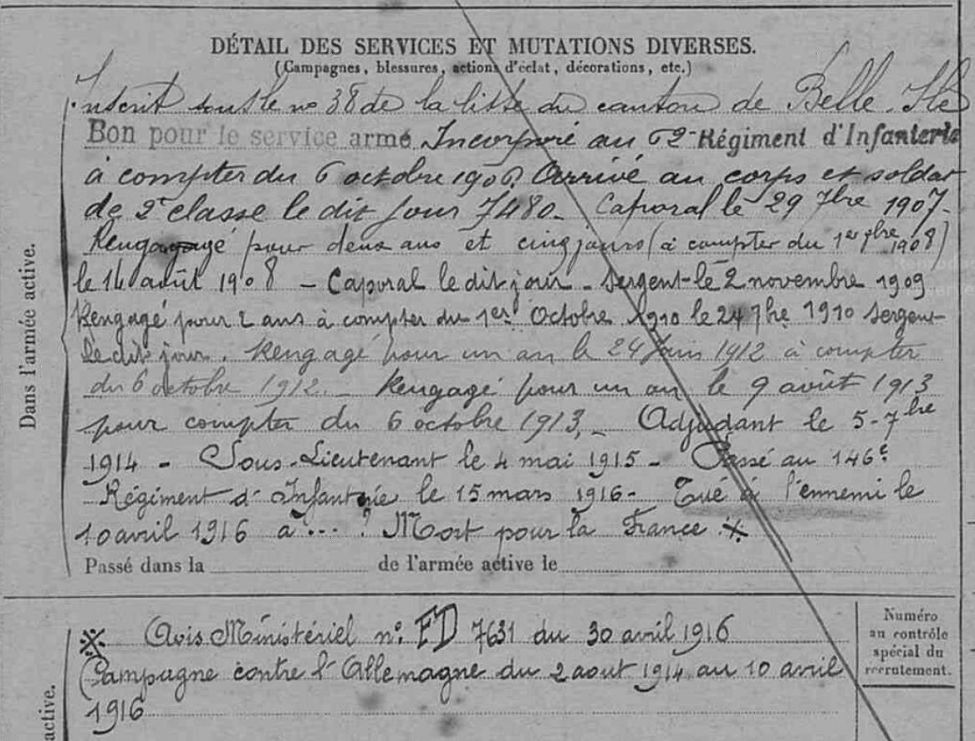 DÉTAIL DES SERVICES ET MUTATIONS DIVERSES.
(Campagnes, blessures, actions d'éclat, décorations, etc.)
Inscrit sous le no 38 de la liste du canton de Belle-Ile
Bon pour le service armé Incorporé au 62e Régiment d'Infanterie
à compter du 6 octobre 1906. Arrivé au corps et soldat
de 2e classe le dit jour 7480 - Caporal le 29 7bre 1907.
Rengagé pour deux ans et cinq jours (à compter du 1er 1908)
le 14 août 1908 - Caporal le dit jour - Sergent le 2 novembre 1909
Rengagé pour 2 ans à compter du 1er Octobre 1910 le 24 7bre 1910 Sergent
le dit jour. Rengagé pour un an le 24 Juin 1912 à compter
du 6 octobre 1912. - Rengagé pour un an le 9 août 1913
pour compter du 6 octobre 1913. - Adjudant le 5-7bre
1914 - Sous-Lieutenant le 4 mai 1915 - Passé au 146e
Régiment d'Infanterie le 15 mars 1916 - Tué à l'ennemi le
10 avril 1916 à ... ? Mort pour la France ※
Passé dans la de l'armée active le
Dans l'armée active.
※ Avis Ministériel n° FD 7631 du 30 avril 1916
Campagne contre l'Allemagne du 2 aout 1914 au 10 avril
1916
Numéro
au contrôle
spécial du
recrutement.
active.